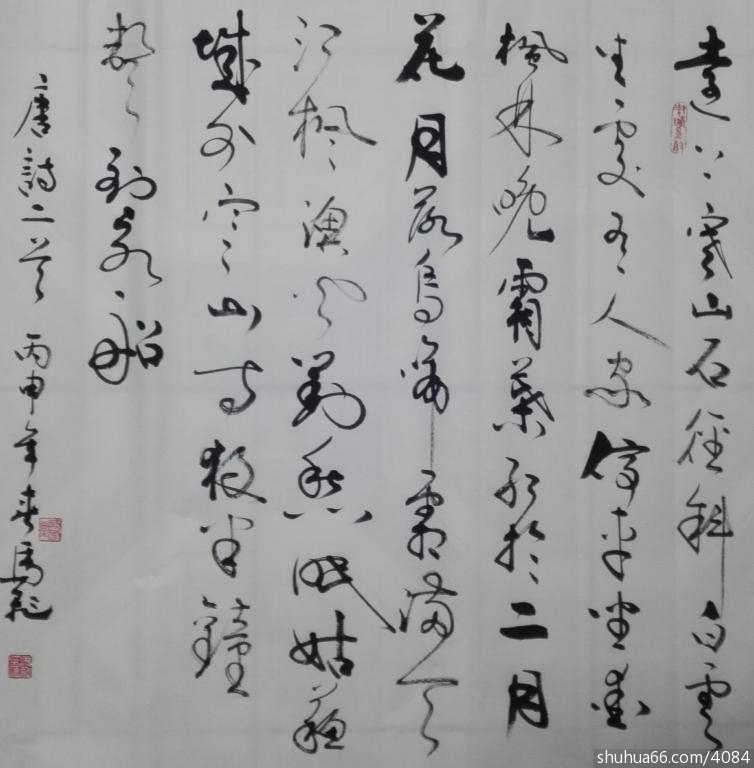 遠上寒山石径斜白雲
生處有人家停車坐愛
楓林晚霜葉紅於二月
花月落烏啼霜满天
江楓漁火對愁眠姑蘇
城外寒山寺夜半鐘
聲到客船
唐詩二首 丙申年春馬
shuhua66.com/4084